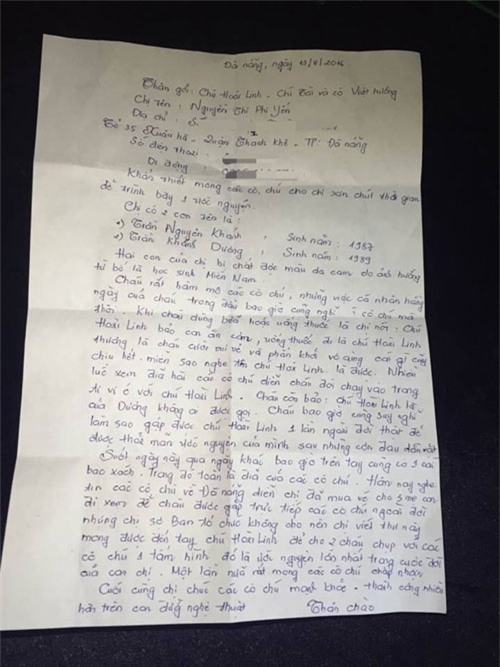 Đà nẵng, ngày 13/4/2016
Thân gởi: Chú Hoài Linh - Chí Tài và cô Việt Hương
Chị tên: Nguyễn Thị Phi Yến
Địa chỉ: S
Tổ 35 Xuân hà - Quận Thanh Khê - TP: Đà nẵng
Số điện thoại:
Di động:
Khẩn thiết mong các cô, chú cho chị xin chút thời gian
để trình bày 1 ước nguyện.
Chị có 2 con tên là:
1) Trần Nguyên Khánh, Sinh năm: 1987
2) Trần Khánh Dương, Sinh năm: 1989
Hai con của chị bị chất độc màu da cam do ảnh hưởng
từ bố là học sinh Miền Nam.
Cháu rất hâm mộ các cô chú, những việc cá nhân hàng
ngày của cháu trong đầu bao giờ cũng nghĩ cô chú mà
thôi. Khi cháu dùng bữa hoặc uống thuốc là chị nói: Chú
Hoài Linh bảo con ăn cơm, uống thuốc đi là chú Hoài Linh
thương là cháu cười vui vẻ và phấn khởi vô cùng cái gì cũng
chịu hết. miễn sao nghe tên chú Hoài Linh là được. Nhiều
lúc xem đĩa hài các cô chú diễn cháu đòi chạy vào trong
Ti vi ở với chú Hoài Linh. Cháu còn bảo: chú Hoài Linh là
của Dương không ai được gọi. Cháu bao giờ cũng suy nghĩ
làm sao gặp được chú Hoài Linh 1 lần ngoài đời thật để
được thoả mãn ước nguyện của mình sau những cơn đau
Suốt ngày này qua ngày khác bao giờ trên tay cũng có 1 cái
bao xách. Trong đó toàn là đĩa của các cô chú. Hôm nay nghe
tin các cô chú về Đà nẵng diễn chị đã mua vé cho 3 mẹ con
đi xem để cháu được gặp trực tiếp các cô chú ngoài đời
nhưng chị sợ Ban tổ chức không cho nên chị viết thư này
mong được đến tay chú Hoài Linh để cho 2 cháu chụp với các
cô chú 1 tấm hình đó là ước nguyện lớn nhất trong cuộc đời
của con chị. Một lần nữa rất mong các cô chú chấp nhận.
Cuối cùng chị chúc các cô chú mạnh khỏe - thành công nhiều
hơn trên con đường nghệ thuật
Thân chào